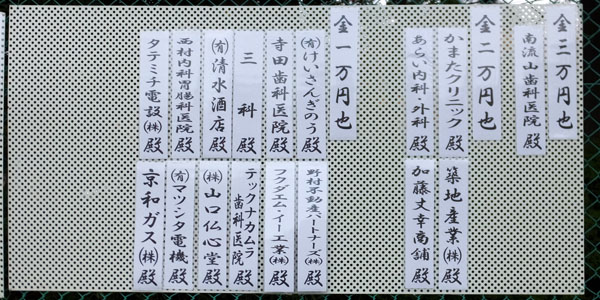 金三万円也
南流山歯科医院 殿
金二万円也
かまたクリニック 殿
あらい内科 外科 殿
築地産業(株) 殿
加藤丈幸商舗 殿
金一万円也
(有)けいさんぎのう 殿
寺田歯科医院 殿
三科 殿
(有)清水酒店 殿
西村内科胃腸科医院 殿
タテミチ電設(株) 殿
野村不動産パートナーズ(株) 殿
フクダエム・イー工業(株) 殿
テックナカムラ歯科医院 殿
(株)山口仏心堂 殿
(有)マツシタ電機 殿
京和ガス(株) 殿